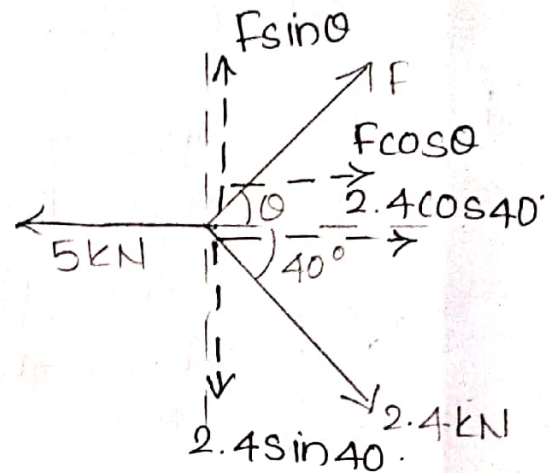 Fsinθ
F
Fcosθ
θ
2.4cos40°
5kN
40°
2.4kN
2.4sin40.